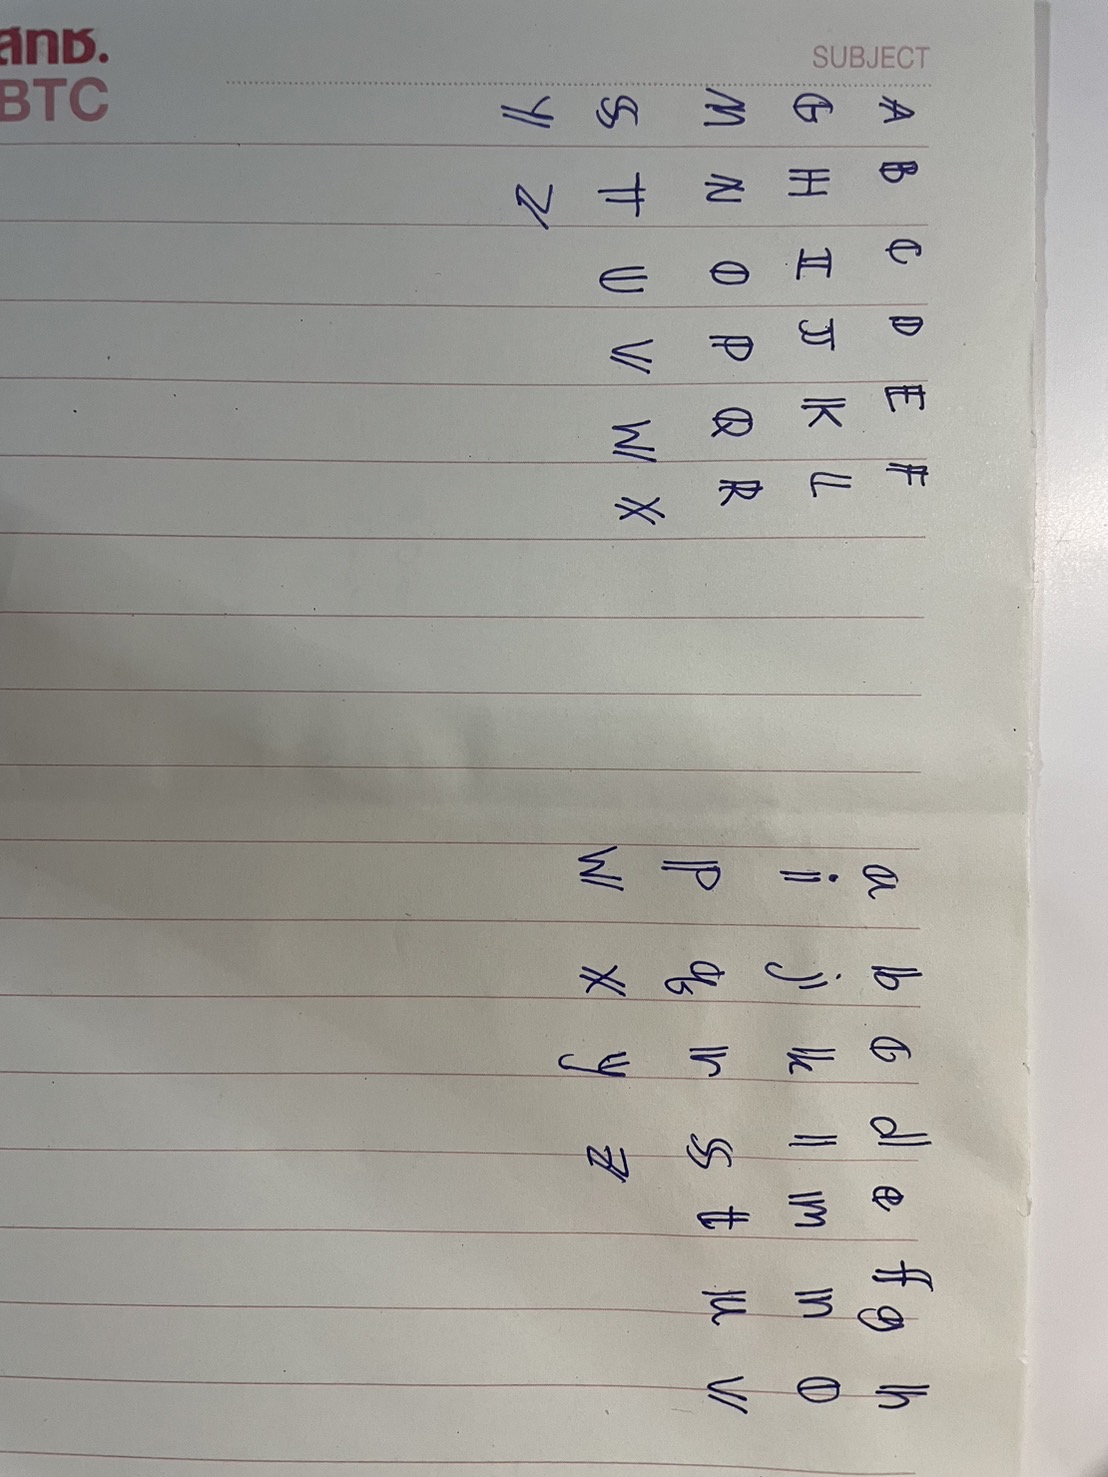 สทช.
BTC
SUBJECT
A B C D E F
G H I J K L
M N O P Q R
S T U V W X
Y Z
a b c d e f g h
i j k l m n o
p q r s t u v
w x y z